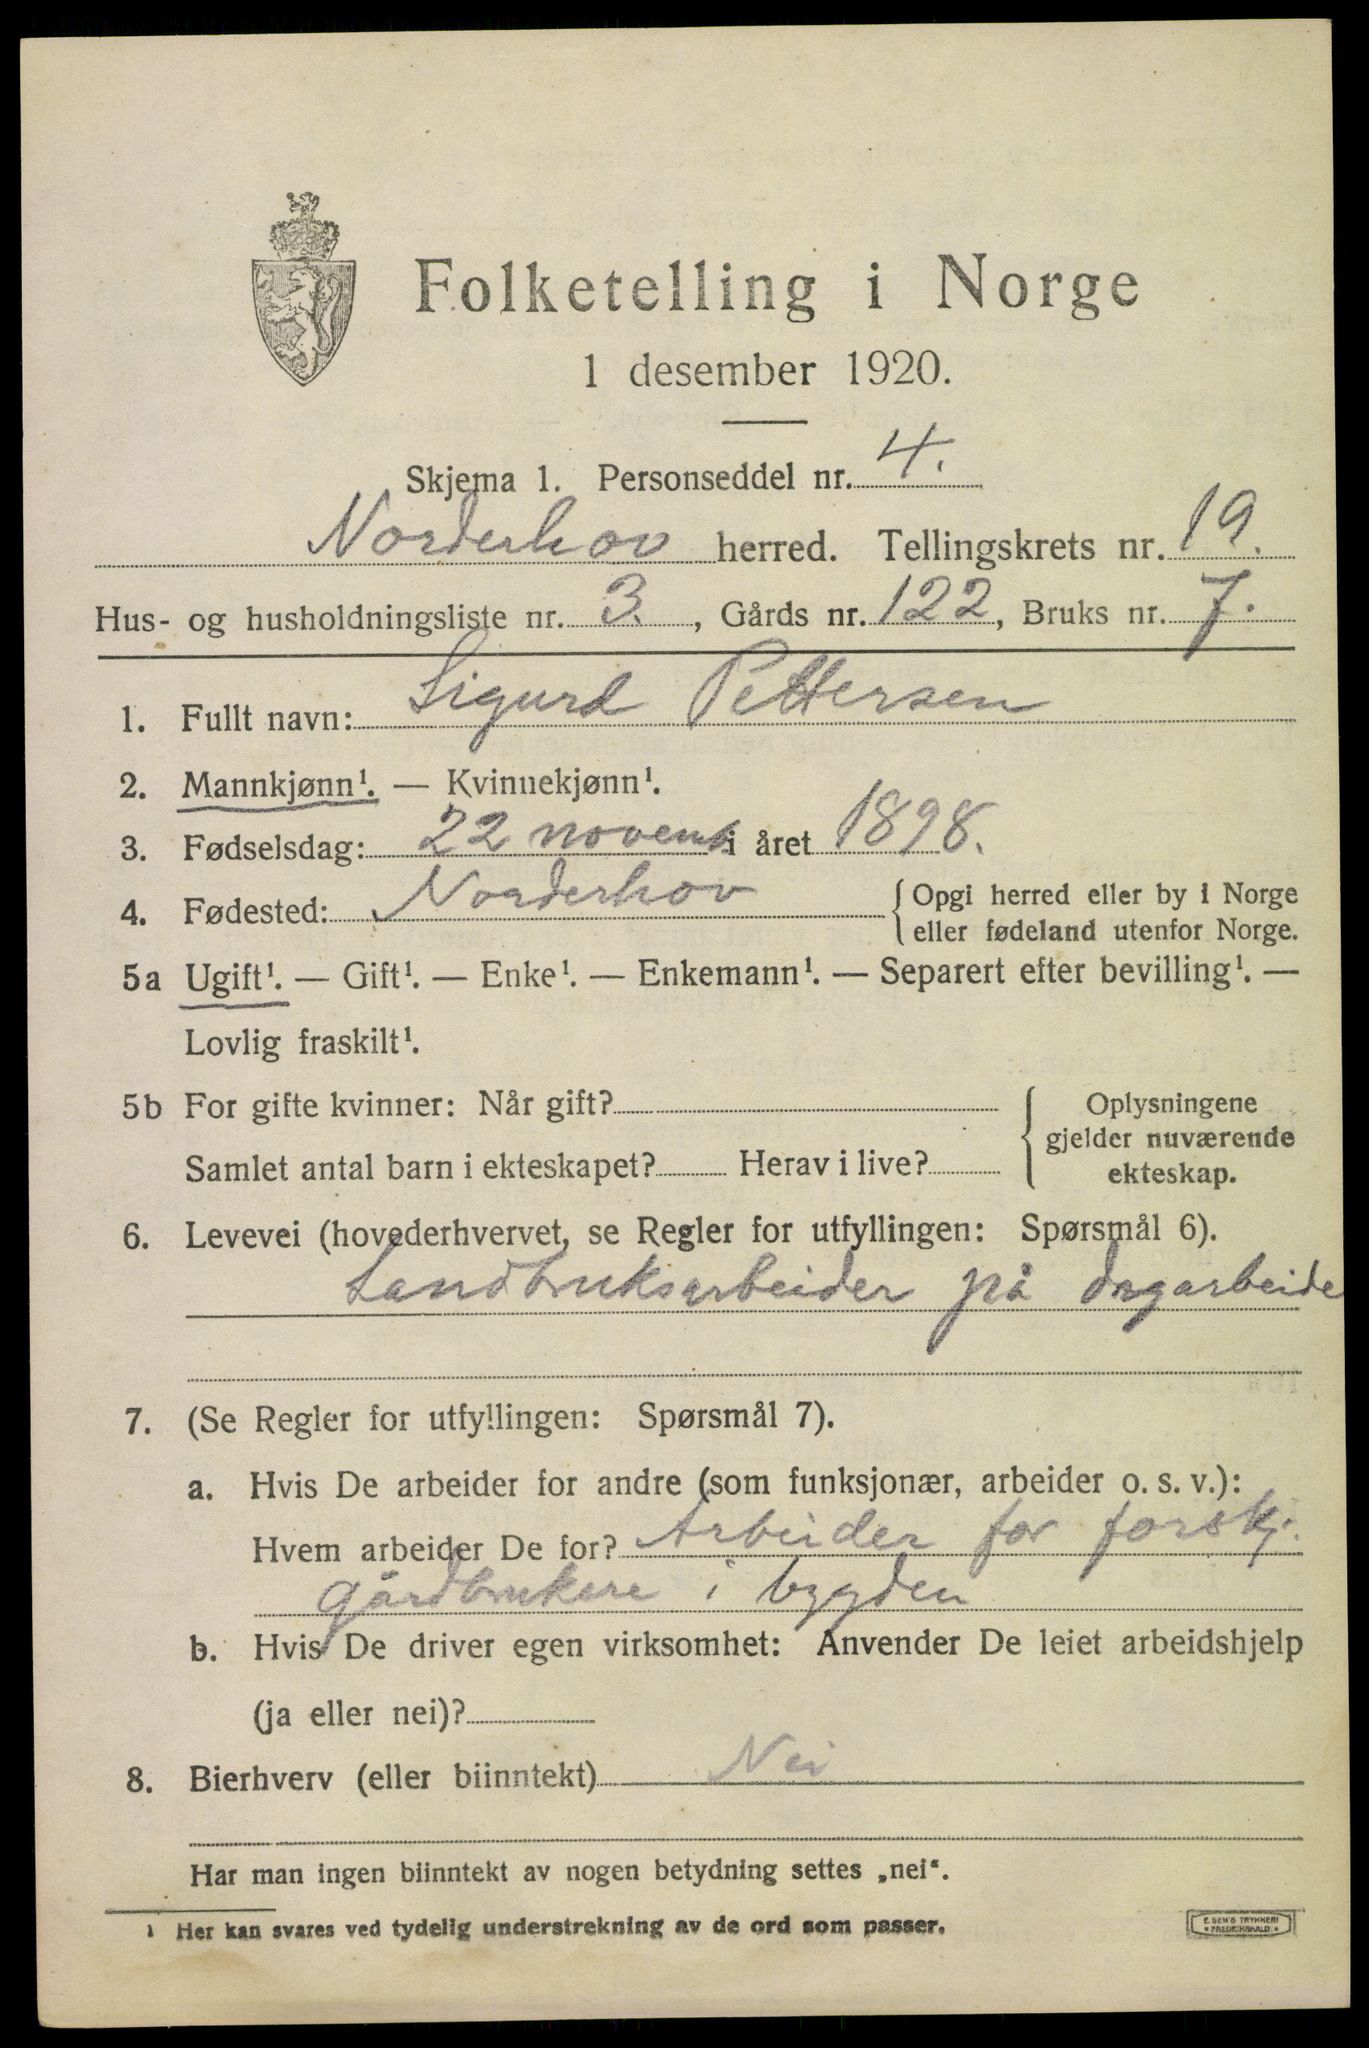 Folketelling i Norge
1 desember 1920.
Skjema 1. Personseddel nr. 4.
Norderhov herred. Tellingskrets nr. 19.
Hus- og husholdningsliste nr. 3. , Gårds nr. 122, Bruks nr. 7.
1. Fullt navn: Sigurd Pettersen
2. Mannkjønn¹. — Kvinnekjønn¹.
3. Fødselsdag: 22 novemb. i året 1898.
4. Fødested: Norderhov { Opgi herred eller by i Norge
eller fødeland utenfor Norge.
5a Ugift¹. — Gift¹. — Enke¹. — Enkemann¹. — Separert efter bevilling¹. —
Lovlig fraskilt¹.
5b For gifte kvinner: Når gift? { Oplysningene
gjelder nuværende
Samlet antal barn i ekteskapet? Herav i live? ekteskap.
6. Levevei (hovederhvervet, se Regler for utfyllingen: Spørsmål 6).
Landbruksarbeider på dagarbeide
7. (Se Regler for utfyllingen: Spørsmål 7).
a. Hvis De arbeider for andre (som funksjonær, arbeider o. s. v.):
Hvem arbeider De for? Arbeider for forskj.
gårdbrukere i bygden
b. Hvis De driver egen virksomhet: Anvender De leiet arbeidshjelp
(ja eller nei)?
8. Bierhverv (eller biinntekt) Nei
Har man ingen biinntekt av nogen betydning settes „nei“.
¹ Her kan svares ved tydelig understrekning av de ord som passer.
E. SEM'S TRYKKERI
• FREDRIKSHALD •